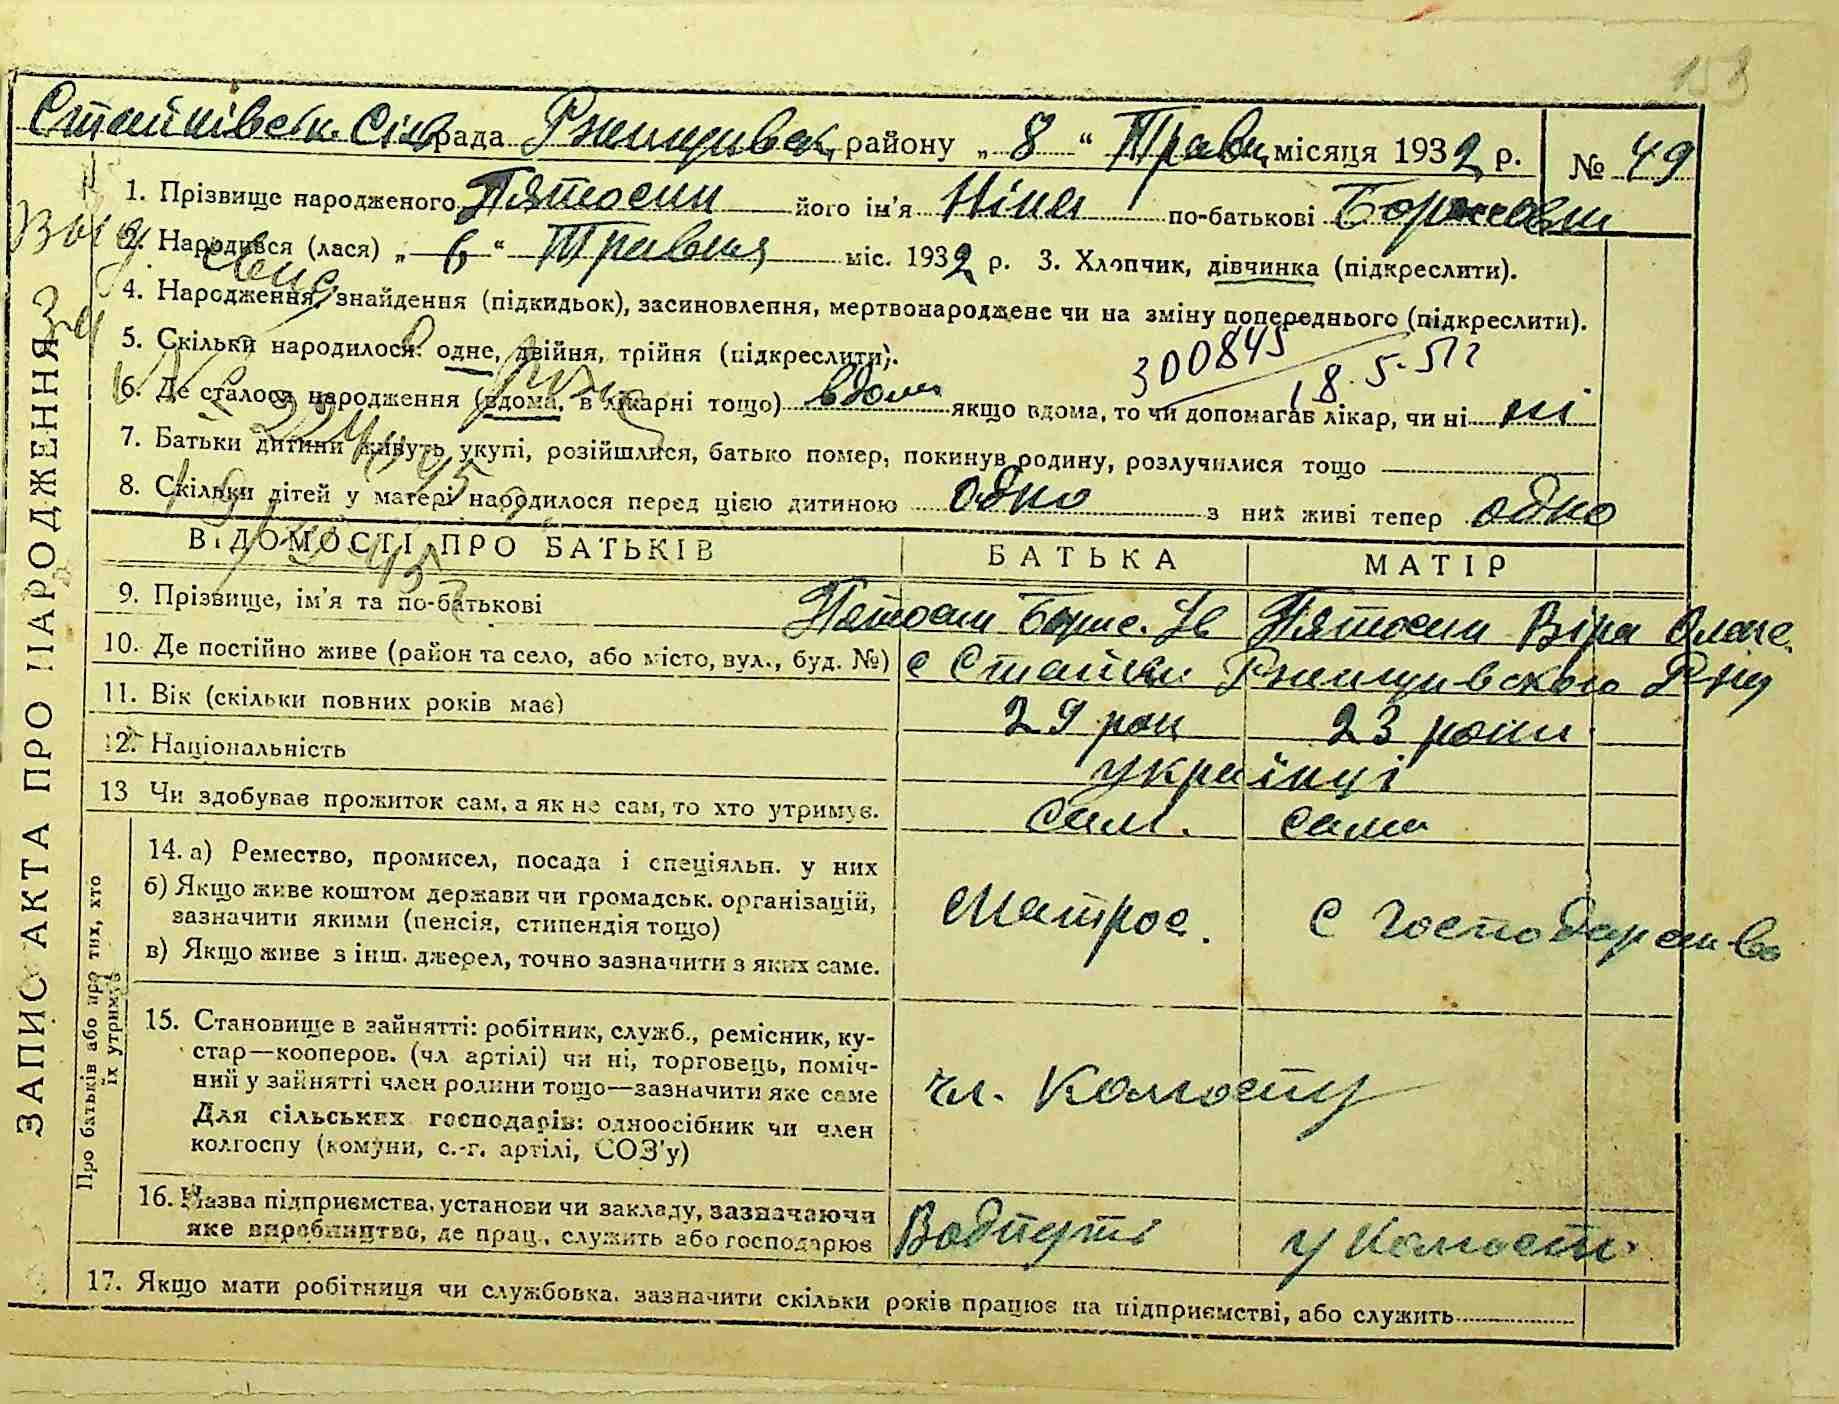 158
Стайківськ. Сільрада Ржищівськ. району „ 8 “ Травн. місяця 1932 р. № 49
1. Прізвище народженого Пятосин його ім'я Ніна по-батькові Борисовн
2. Народився (лася) „ 6 “ Травня міс. 1932 р. 3. Хлопчик, дівчинка (підкреслити).
4. Народження, знайдення (підкидьок), засиновлення, мертвонароджене чи на зміну попереднього (підкреслити).
5. Скільки народилося: одне, двійня, трійня (підкреслити).
300845
18.5.51г
6. Де сталося народження (вдома, в лікарні тощо) вдома якщо вдома, то чи допомагав лікар, чи ні ні
7. Батьки дитини живуть укупі, розійшлися, батько помер, покинув родину, розлучилися тощо
8. Скільки дітей у матері народилося перед цією дитиною одно з них живі тепер одно
ВІДОМОСТІ ПРО БАТЬКІВ БАТЬКА МАТІР
9. Прізвище, ім'я та по-батькові Пятосин Борис. Ів Пятосин Віра Олекс.
10. Де постійно живе (район та село, або місто, вул., буд. №) с Стайки Ржищивского Р-ну
11. Вік (скільки повних років має) 29 рок 23 роки
12. Національність українці
13 Чи здобував прожиток сам, а як не сам, то хто утримує. сам. сама
14. а) Ремество, промисел, посада і спеціяльн. у них
б) Якщо живе коштом держави чи громадськ. організацій,
зазначити якими (пенсія, стипендія тощо)
в) Якщо живе з інш. джерел, точно зазначити з яких саме.
Матрос. С господарство
15. Становище в зайнятті: робітник, служб., ремісник, ку-
стар—кооперов. (чл артілі) чи ні, торговець, поміч-
ний у зайнятті член родини тощо—зазначити яке саме
Для сільських господарів: одноосібник чи член
колгоспу (комуни, с.-г. артілі, СОЗ'у)
чл. Колгоспу
16. Назва підприємства, установи чи закладу, зазначаючи
яке виробництво, де прац., служить або господарює
Водпуті у Колгосп.
17. Якщо мати робітниця чи службовка, зазначити скільки років працює на підприємстві, або служить
ЗАПИС АКТА ПРО НАРОДЖЕННЯ
Про батьків або про тих, хто
їх утримує